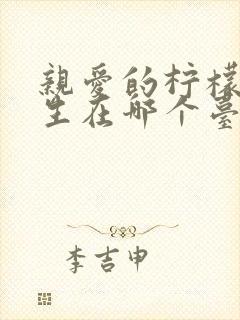 親愛的柠檬
生在哪个臺
李吉申